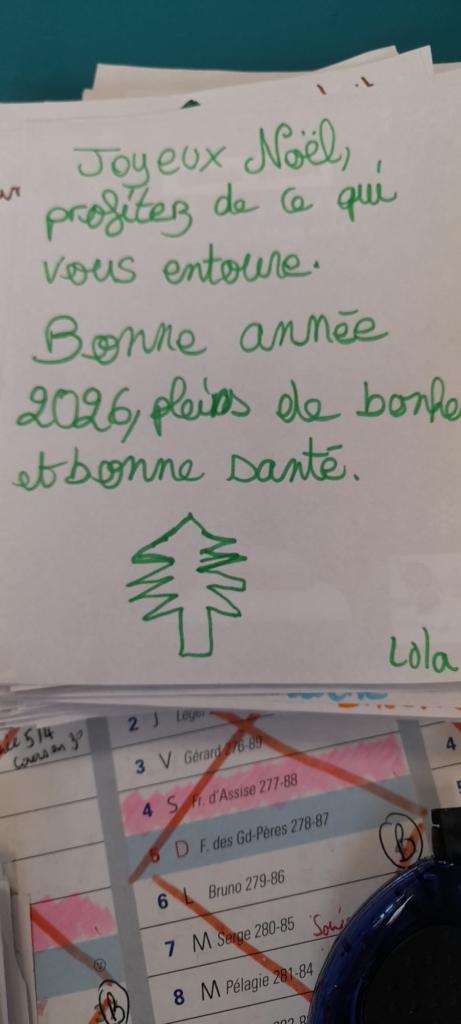 Joyeux Noël,
profitez de ce qui
vous entoure.
Bonne année
2026, pleins de bonhe
et bonne santé.
Lola
2 J Léger
3 V Gérard 276-89
4 S Fr. d'Assise 277-88
5 D F. des Gd-Pères 278-87
B
6 L Bruno 279-86
7 M Serge 280-85
8 M Pélagie 281-84
B
4